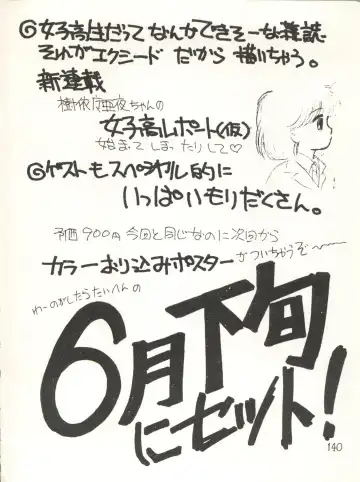 ◎女子高生だってなんかできそーな雑誌
それがエクシード だから 描いちゃう。
新連載
樹依亜夜ちゃんの
女子高レポート(仮)
始まってしまったりして♡
◎ゲストもスペシャル的に
いっぱいもりだくさん。
予価900円 今回と同じなのに次回から
カラーおり込みポスター がついちゃうぞ〜〜
わーのがしたらたいへんの
6月下旬
にセット!
140